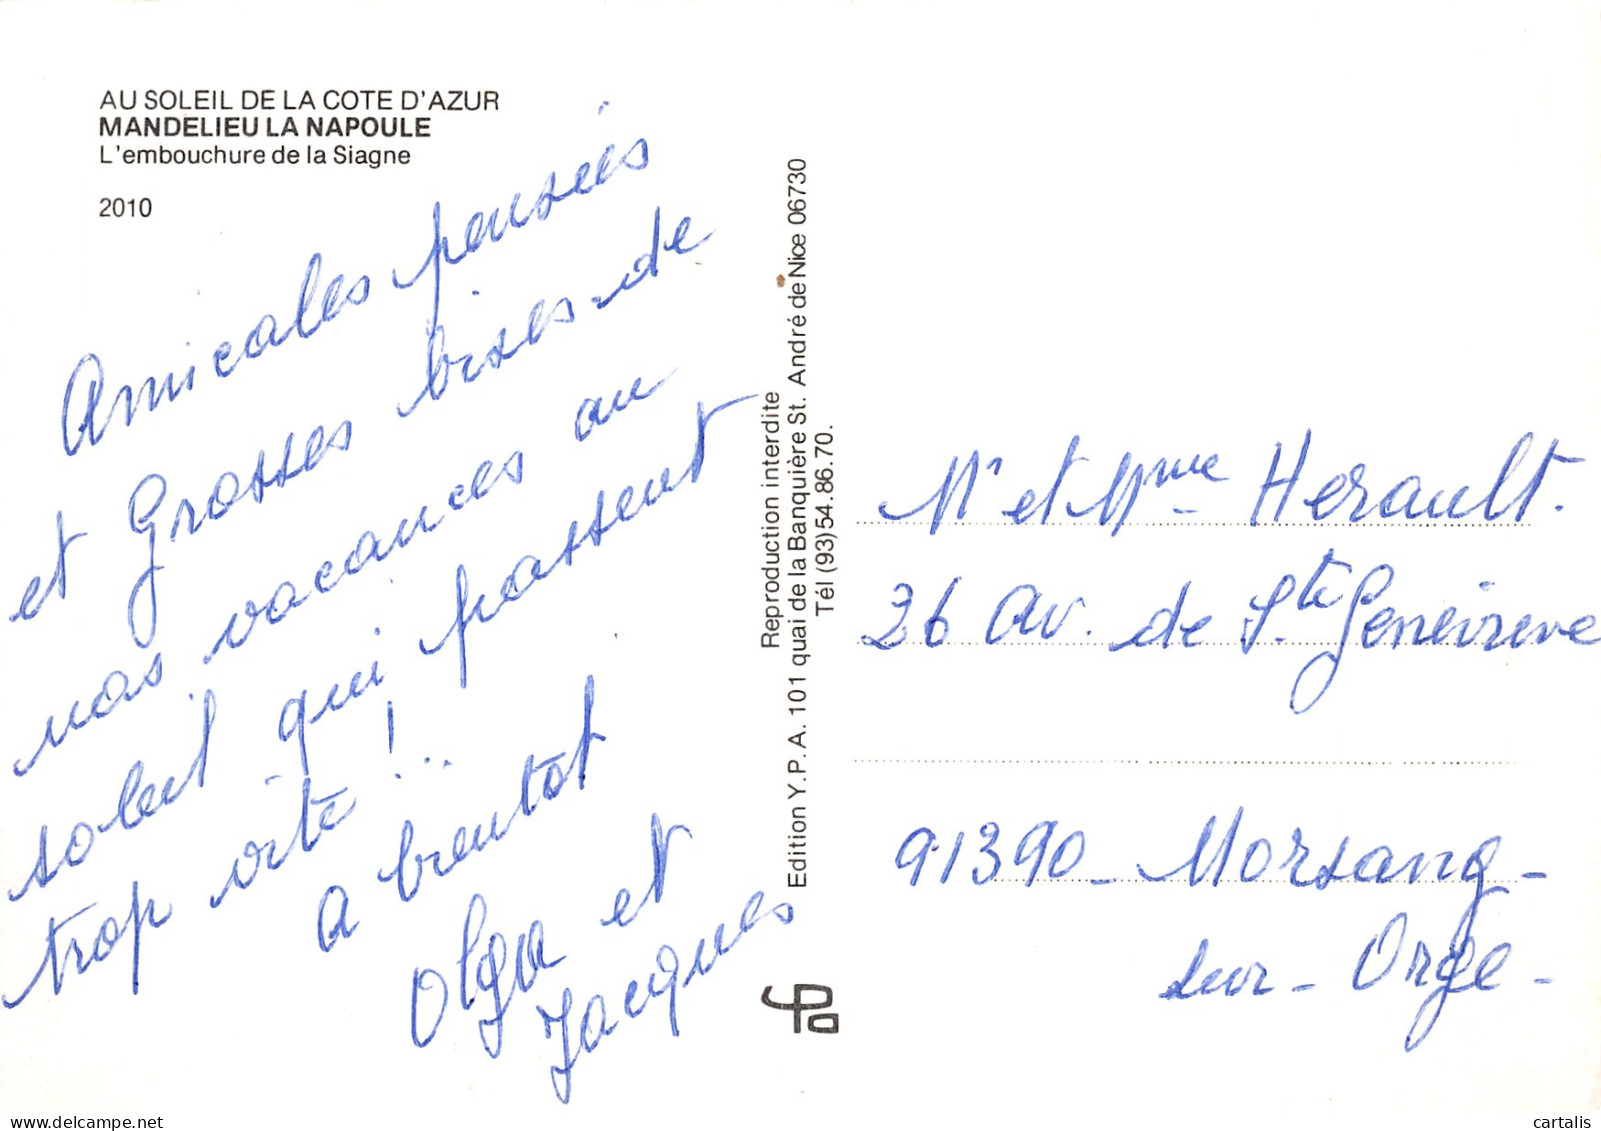 AU SOLEIL DE LA COTE D'AZUR
MANDELIEU LA NAPOULE
L'embouchure de la Siagne
2010
Amicales pensées
et Grosses bises de
nos vacances au
soleil qui passent
trop vite !...
A bientôt
Olga et
Jacques
Reproduction interdite
Edition Y.P.A. 101 quai de la Banquière St. André de Nice 06730
Tél (93) 54.86.70.
Mr et Mme Herault.
26 Av. de Ste Genevieve
91390 - Morsang -
sur - Orge -
www.delcampe.net
cartalis